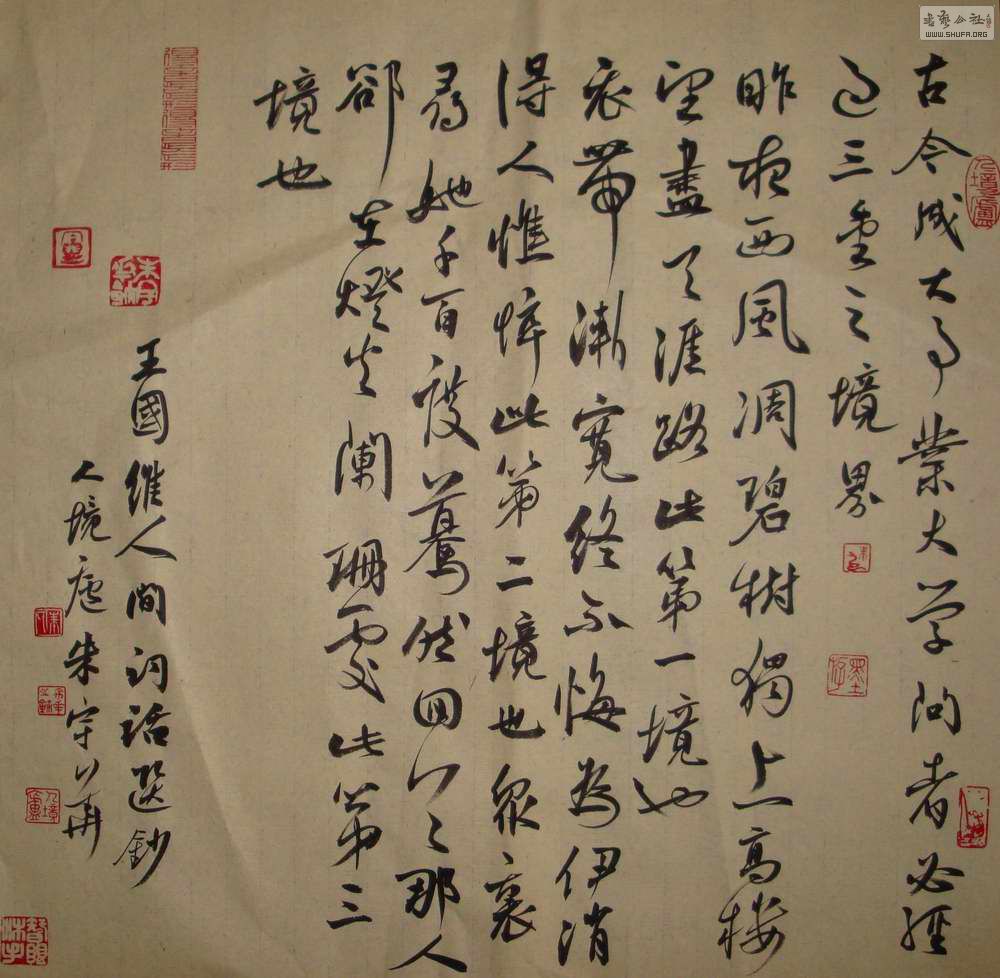 古今成大事業大学问者必經
过三重之境界
昨夜西風凋碧樹獨上高楼
望盡天涯路此第一境也
衣帶漸寬終不悔为伊消
得人憔悴此第二境也眾裏
尋她千百度驀然回首那人
卻在燈火闌珊處此第三
境也
王國維人间词话選鈔
人境廬朱守
書藝公社
WWW.SHUFA.ORG